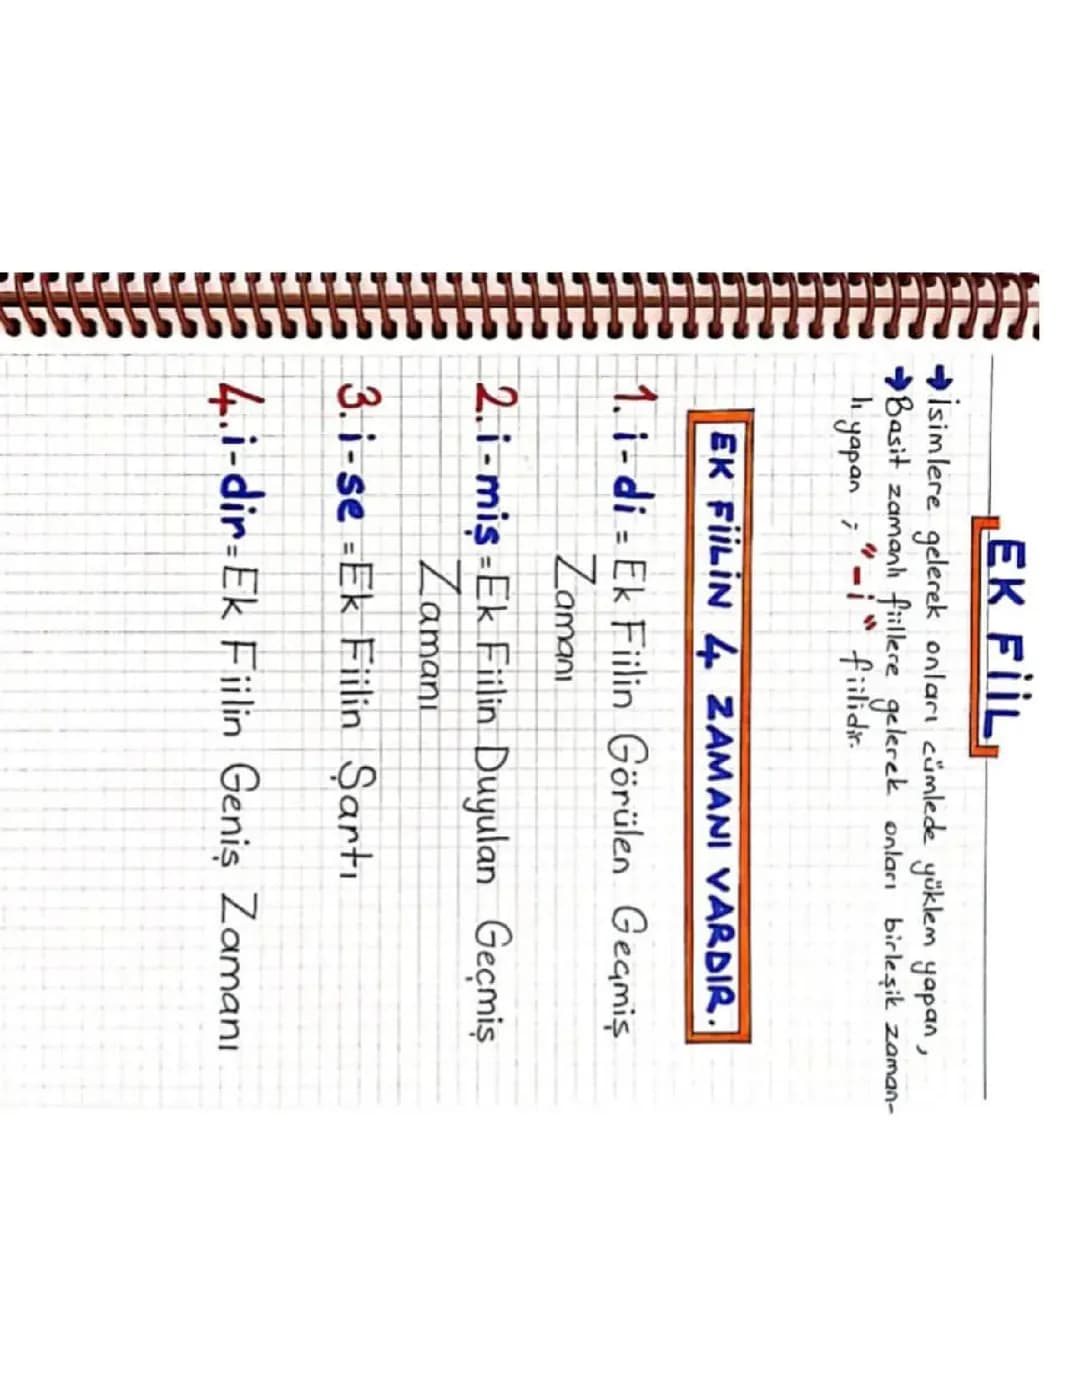 EK FİİL
→ İsimlere gelerek onları cümlede yüklem yapan,
→ Basit zamanlı fiillere gelerek onları birleşik zaman-
lı yapan ; "-i" fiilidir.
EK FİİLİN 4 ZAMANI VARDIR.
1. i-di = Ek Fiilin Görülen Geçmiş
Zamanı
2. i-miş = Ek Fiilin Duyulan Geçmiş
Zamanı
3. i-se = Ek Fiilin Şartı
4. i-dir = Ek Fiilin Geniş Zamanı